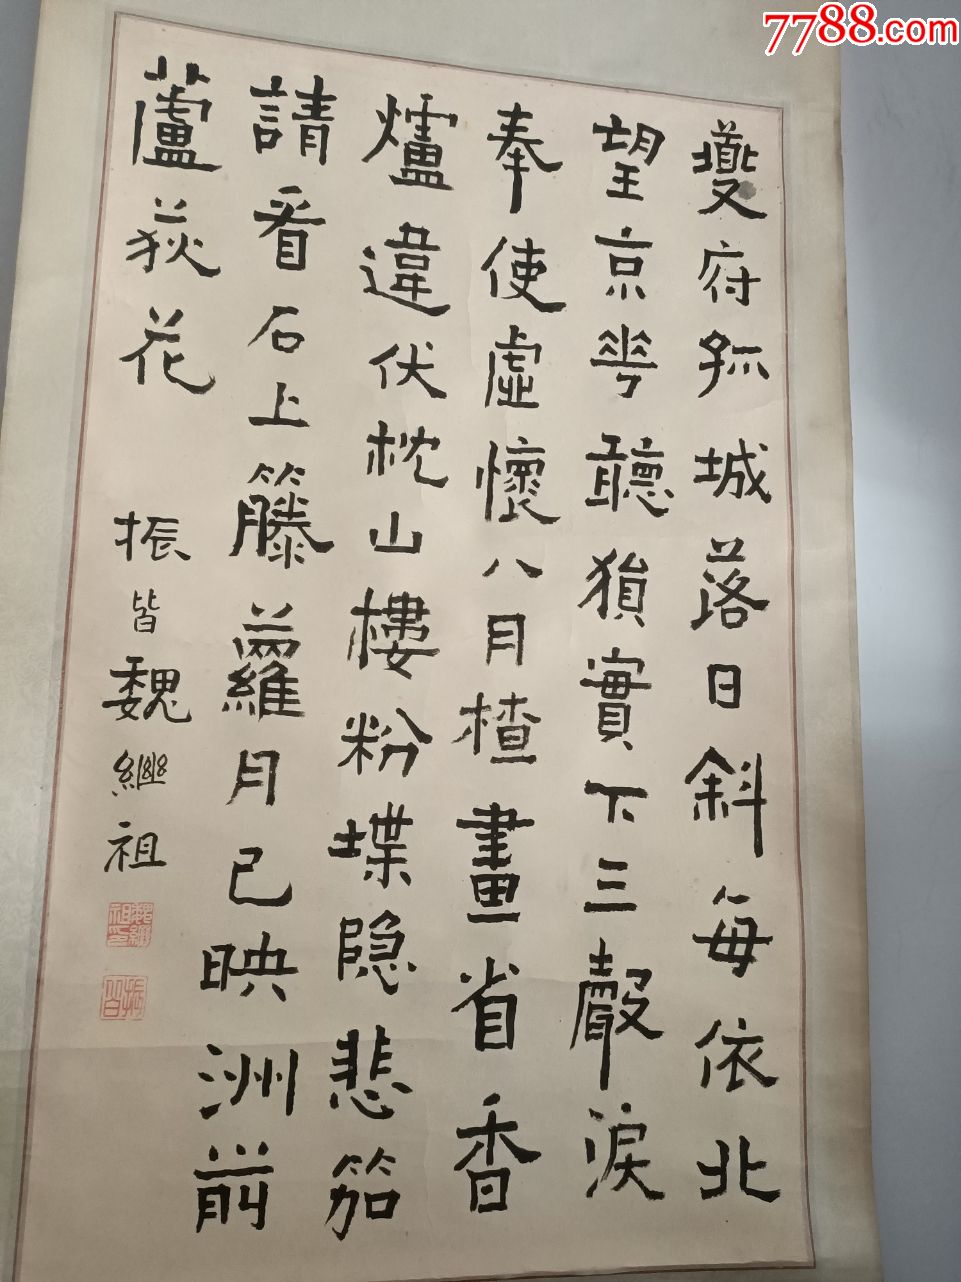 7788.com
夔府孤城落日斜每依北
望京華聽猿實下三聲淚
奉使虛懷八月楂畫省香
爐違伏枕山樓粉堞隐悲笳
請看石上籐蘿月已映洲前
蘆荻花
振皆魏繼祖
魏繼祖印
振皆